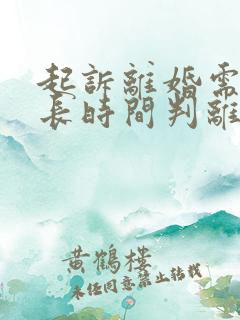 起訴離婚需
長時間判離
黄鶴樓
未任同意禁止转载